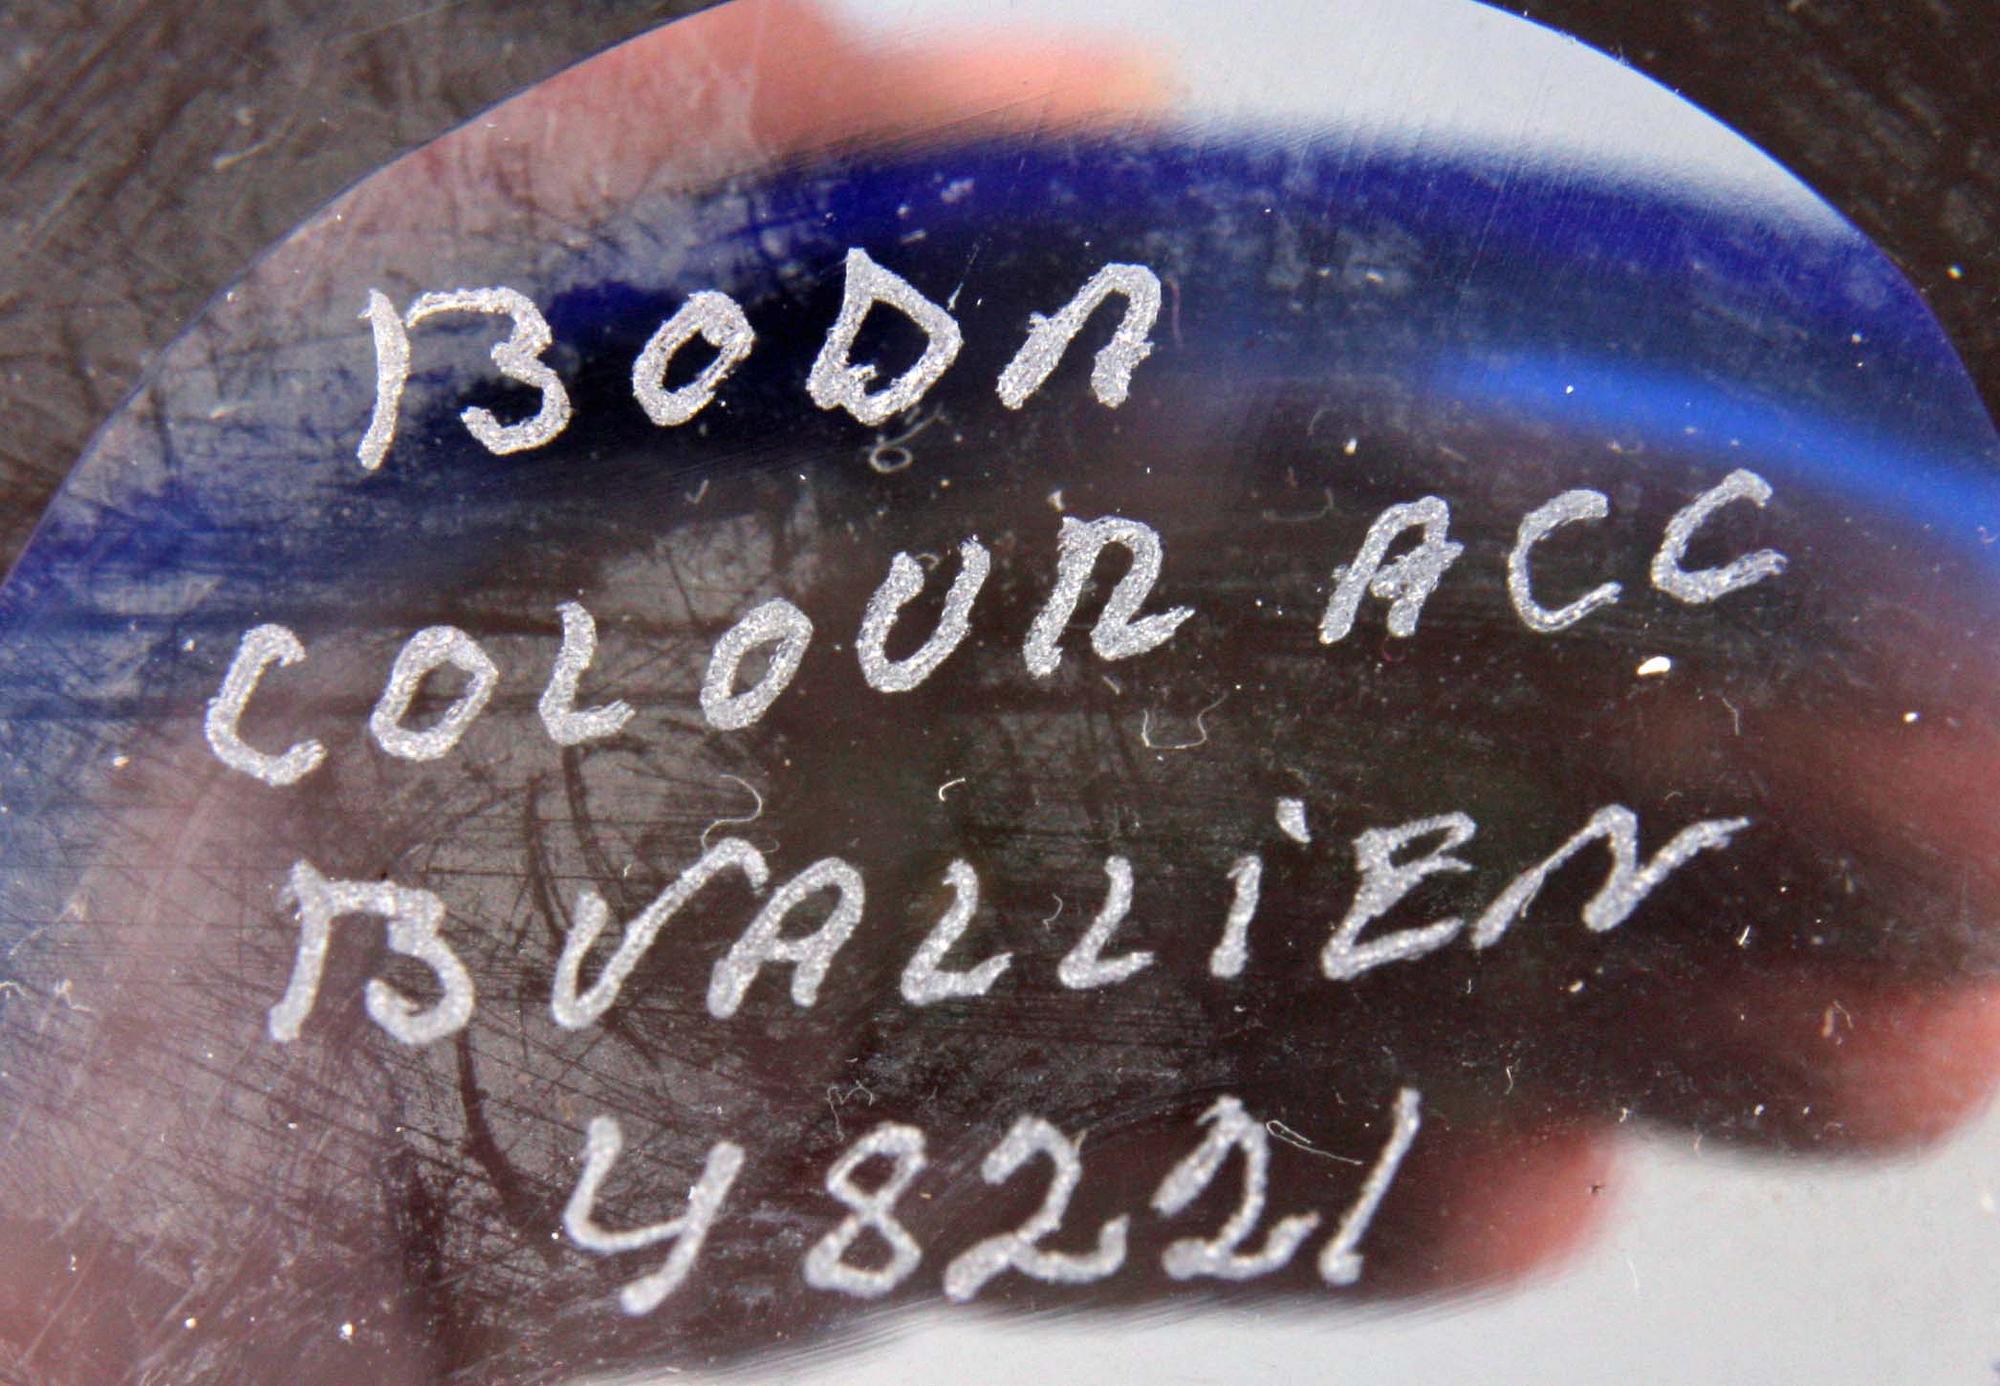 BODA
COLOUR ACC
B VALLIEN
48221